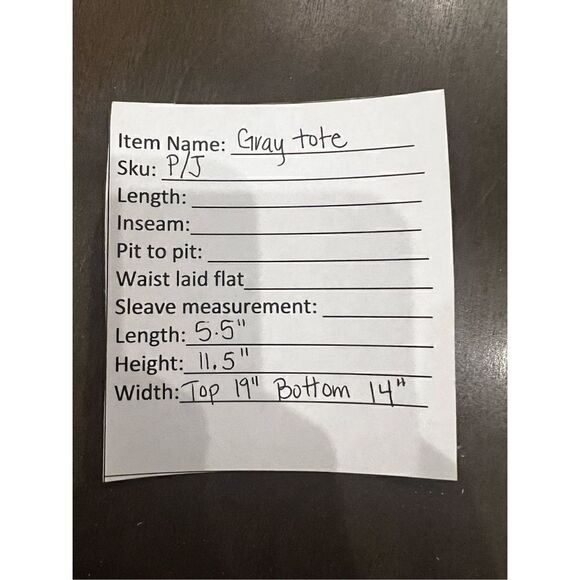 Item Name: Gray tote
Sku: P/J
Length:
Inseam:
Pit to pit:
Waist laid flat
Sleave measurement:
Length: 5.5"
Height: 11.5"
Width: Top 19" Bottom 14"